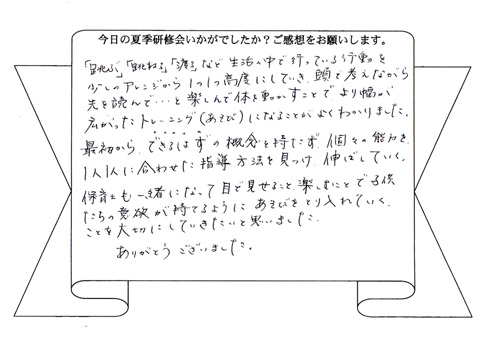 今日の夏季研修会いかがでしたか？ご感想をお願いします。
「跳ぶ」「跳ねる」「渡る」など 生活の中で行っている行動を
少しのアレンジから 1つ1つ高度にしていき、頭で考えながら
先を読んで…と楽しんで体を動かすことでより幅が
広がったトレーニング(あそび)になることがよくわかりました。
最初から、できるはずの概念を持たず、個々の能力を
1人1人に合わせた指導方法を見つけ、伸ばしていく。
保育士も一緒になって目で見せること、楽しむことで子供
たちの意欲が持てるように、あそびをとり入れていく
ことを大切にしていきたいと思いました。
ありがとうございました。